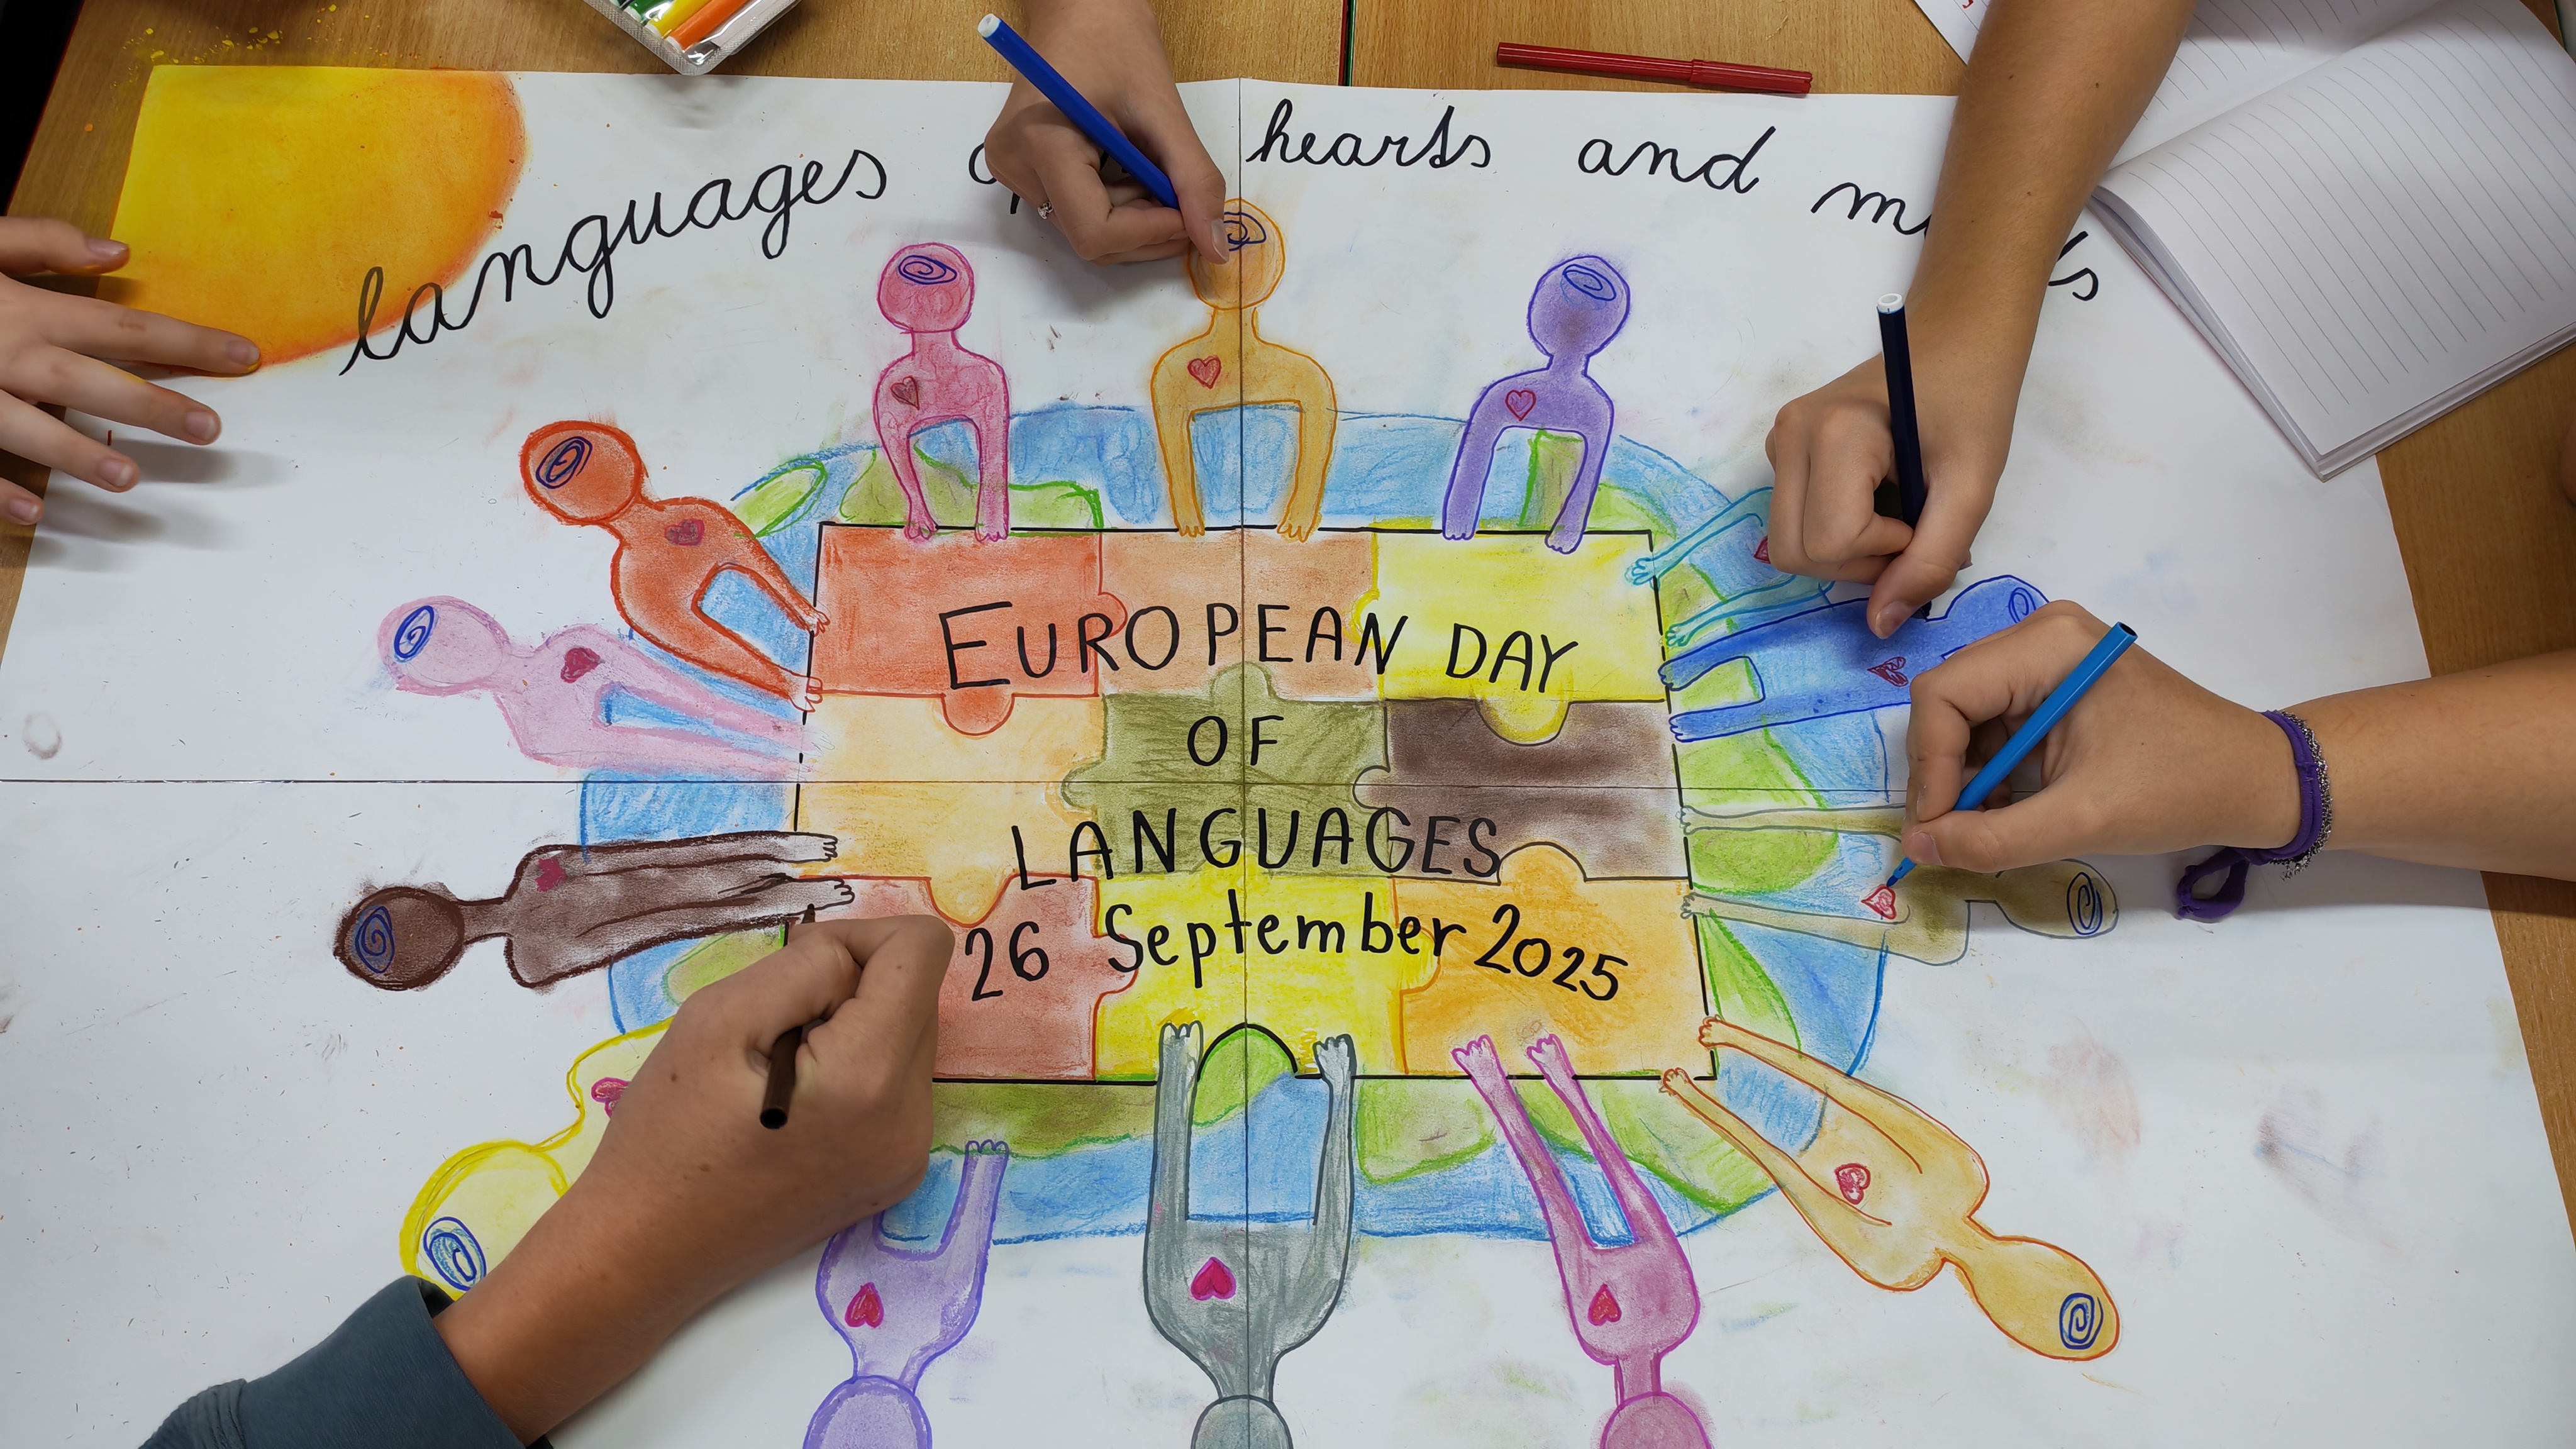 languages hearts and
EUROPEAN DAY
OF
LANGUAGES
26 September 2025